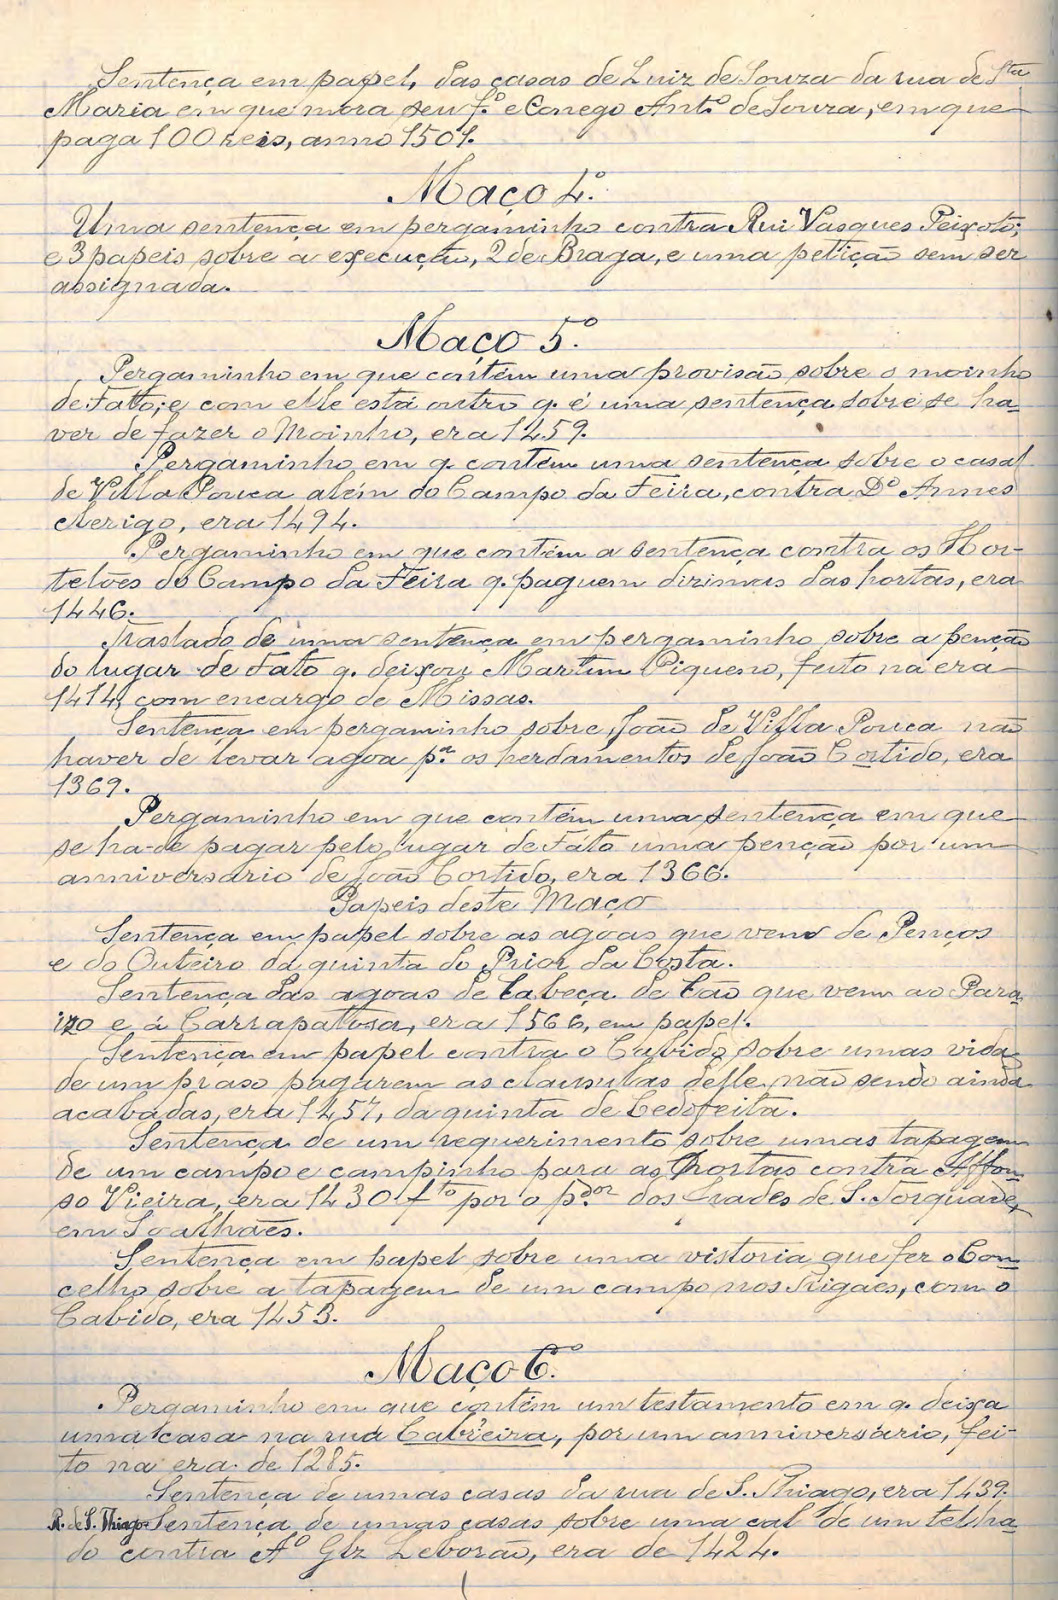 Sentença em papel, das casas de Luiz de Souza da rua de Sta
Maria em que móra seu fº e Conego Antº de Souza, em que
paga 100 reis, anno 1501.
Maço 4º.
Uma sentença em pergaminho contra Rui Vasques Peixoto;
e 3 papeis sobre a execução, 2 de Braga, e uma petição sem ser
assignada.
Maço 5º.
Pergaminho em que contém uma provisão sobre o moinho
de Fato; e com elle está outro q. é uma sentença sobre se ha-
ver de fazer o Moinho, era 1459.
Pergaminho em q. contém uma sentença sobre o casal
de Villa Pouca além do Campo da Feira, contra Dº Annes
clerigo, era 1494.
Pergaminho em que contém a sentença contra os Hor-
telões do Campo da Feira q. paguem dizimas das hortas, era
1446.
Traslado de uma sentença em pergaminho sobre a penção
do lugar de Fato q. deixou Martim Piqueno, feito na era
1414, com encargo de Missas.
Sentença em pergaminho sobre João de Villa Pouca não
haver de levar agoa pª os herdamentos de João Cortido, era
1369.
Pergaminho em que contém uma sentença em que
se ha-de pagar pelo lugar de Fato uma penção por um
anniversario de João Cortido, era 1366.
Papeis deste Maço
Sentença em papel sobre as agoas que vem de Penços
e do Outeiro da quinta do Prior da Costa.
Sentença das agoas de Cabeça de Cão que vem ao Para-
izo e á Carrapatosa, era 1566, em papel.
Sentença em papel contra o Cabido sobre umas vidas
de um praso pagarem as clausulas delle não sendo ainda
acabadas, era 1457, da quinta de Cedofeita.
Sentença de um requerimento sobre umas tapagem
de um campo e campinho para as hortas contra Affon-
so Vieira, era 1430 fto por o pdor dos frades de S. Torquade,
em Soalhães.
Sentença em papel sobre uma vistoria que fez o Con-
celho sobre a tapagem de um campo nos Rigaes, com o
Cabido, era 1453.
Maço 6º.
Pergaminho em que contém um testamento em q. deixa
uma casa na rua Cabreira, por um anniversario, fei-
to na era de 1285.
Sentença de umas casas da rua de S. Thiago, era 1439.
R. de S. Thiago - Sentença de umas casas sobre uma cal de um telha-
do contra Aº Glz Leborão, era de 1424.